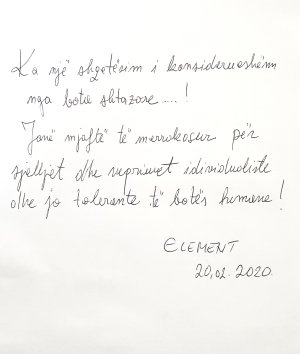 Ka një shqetësim i konsiderueshëm
nga bota shtazore....!
Janë mjaftë të merrakosur për
sjelljet dhe veprimet idividualiste
dhe jo tolerante të botës humane!
ELEMENT
20.02.2020.